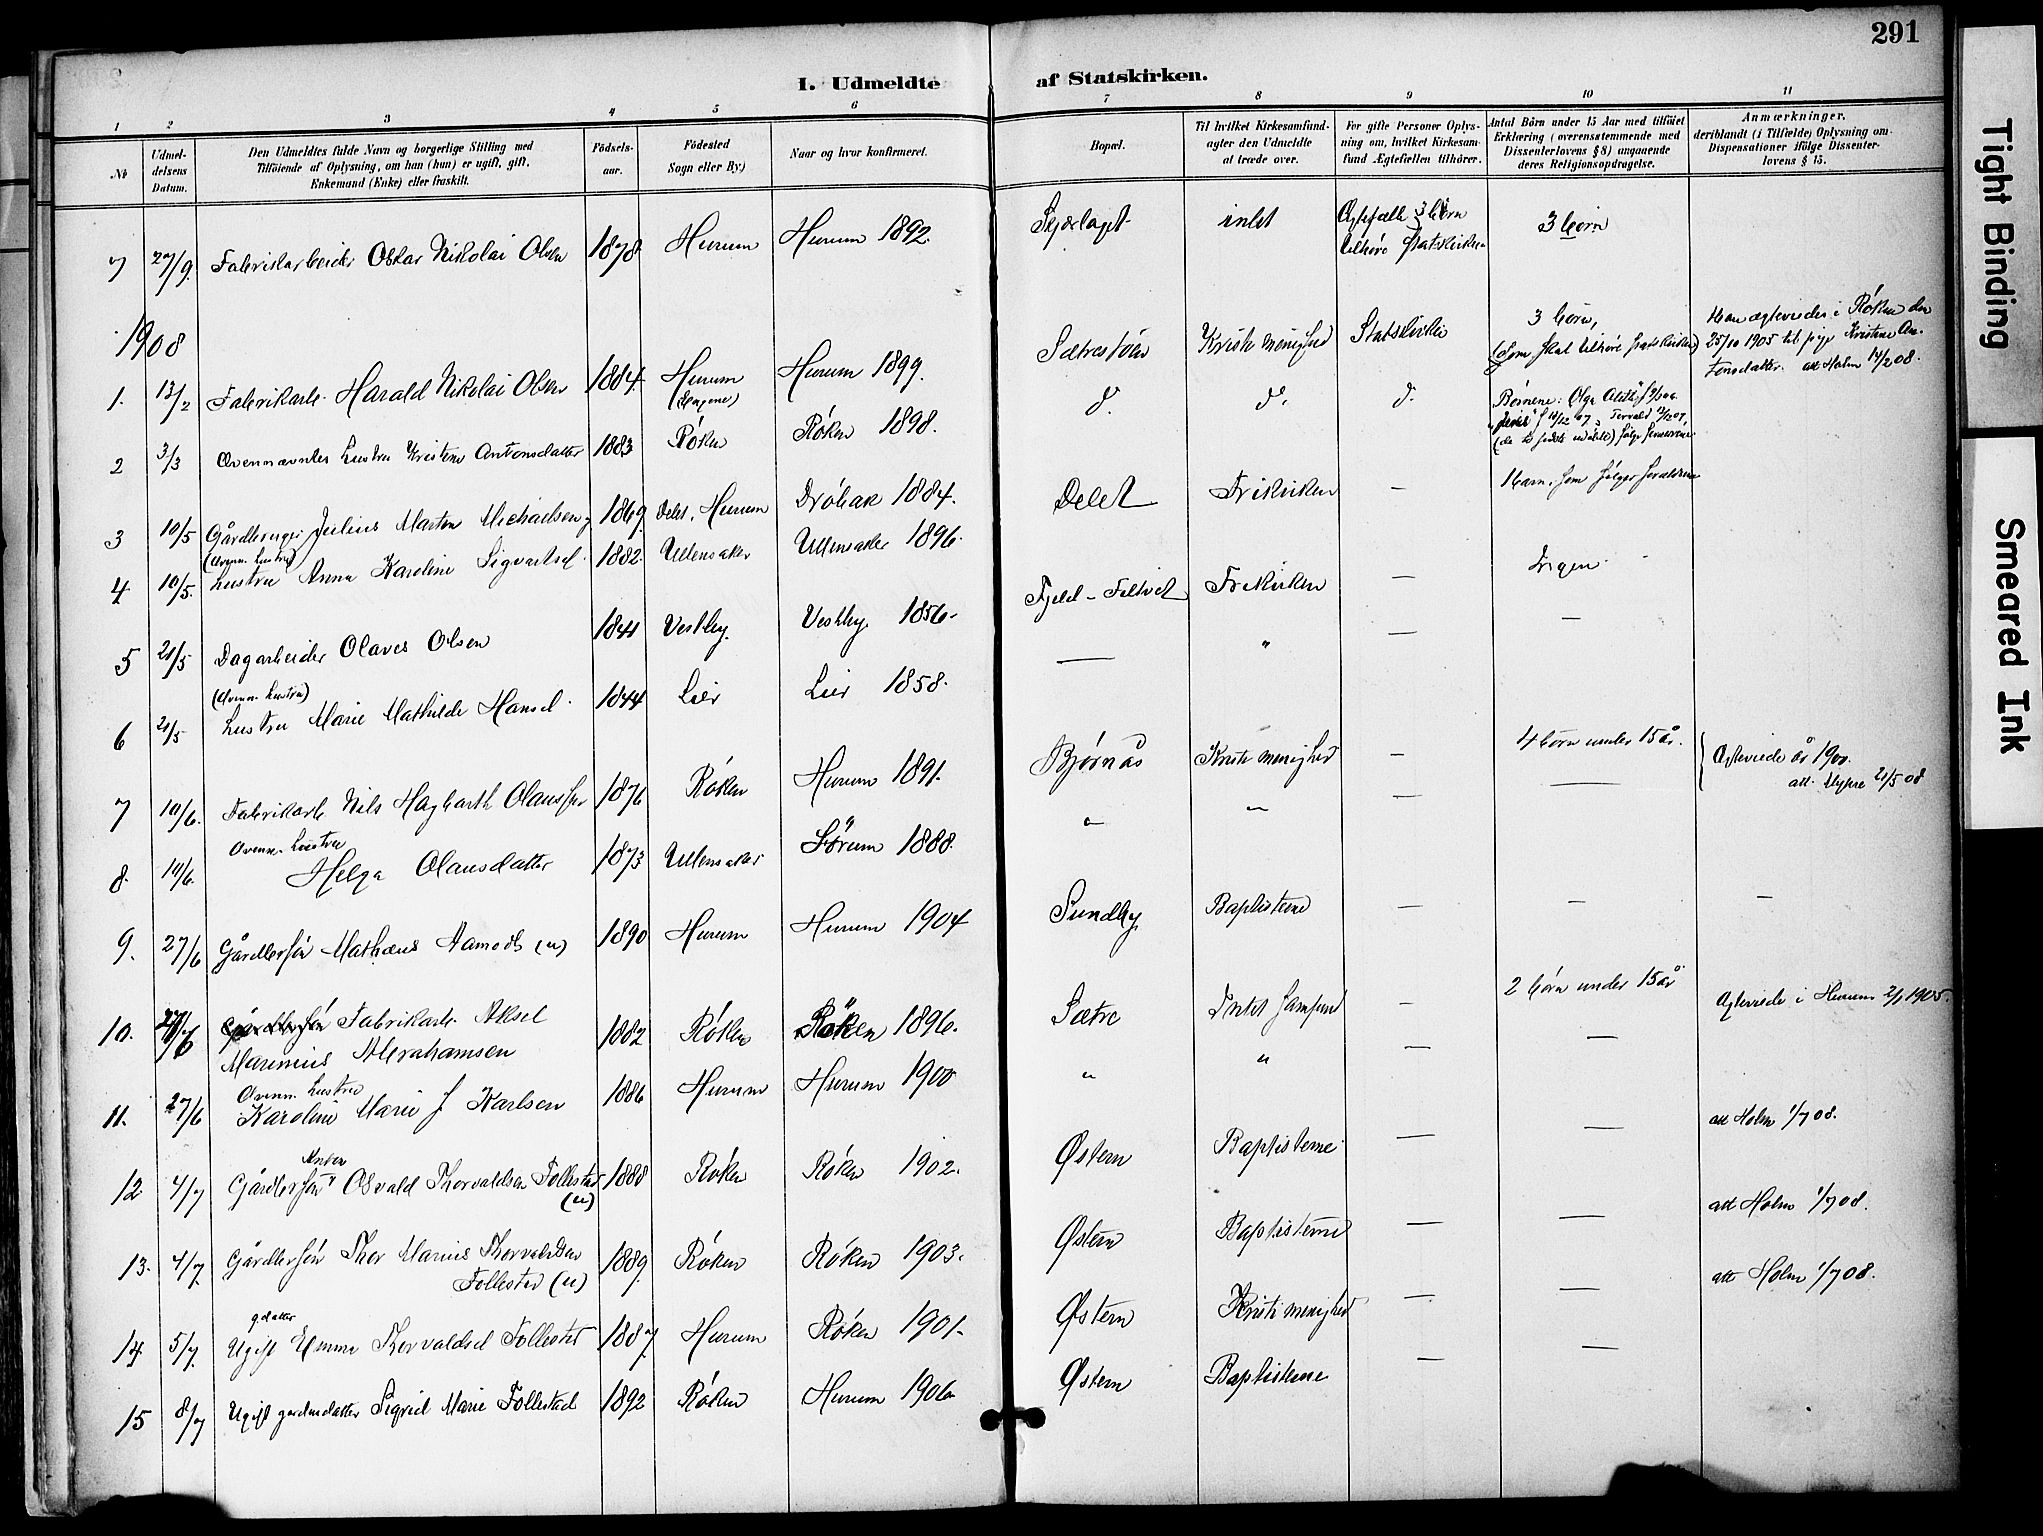 291
I. Udmeldte af Statskirken.
1 2 3 4 5 6 7 8 9 10 11
No
Udmeldelsens Datum.
Den Udmeldtes fulde Navn og borgerlige Stilling med
Tilføiende af Oplysning, om han (hun) er ugift, gift,
Enkemand (Enke) eller fraskilt.
Fødselsaar.
Fødested
Sogn eller By.)
Naar og hvor konfirmeret.
Bopæl.
Til hvilket Kirkesamfund-
agter den Udmeldte
at træde over.
For gifte Personer Oplys-
ning om, hvilket Kirkesam-
fund Ægtefællen tilhører.
Antal Børn under 15 Aar med tilføiet
Erklæring (overensstemmende med
Dissenterlovens § 8) angaaende
deres Religionsopdragelse.
Anmærkninger,
deriblandt (i Tilfælde) Oplysning om
Dispensationer ifølge Dissenter-
lovens § 15.
7 27/9. Fabrikarbeider Oskar Nikolai Olsen 1878 Hurum Hurum 1892. intet 3 børn
tilhøre Statskirken
1908
1. 13/2 Fabrikarb. Harald Nikolai Olsen 1884 Hurum Hurum 1899. Kristi menighed Statskirke 3 børn,
(som skal tilhøre statskirken)
Han ægteviedes i Røken den
25/10 1905 til pige Kristine An-
tonsdatter. att Holm 14/2 08.
2 3/3 Ovennævntes hustru Kristine Antonsdatter 1883 Røken Røken 1898. d. d. d.
Børnene: Olga
3 10/5 Gårdbruger Julius Marten Michaelsen 1869 Hurum Drøbak 1884. Frikirken — 1 barn, som følger forældrene
4 10/5. (Ovenn. hustru)
hustru Anna Karoline Sigvartsd. 1882. Ullensaker Ullensaker 1896. Frikirken — Ingen.
5 21/5 Dagarbeider Olaves Olsen 1841 Vestby. Vestby. 1856. — " — —
6 21/5 (Ovenn. hustru)
hustru Marie Mathilde Hansd. 1844 Lier Lier 1858.
7 10/6. Fabrikarb Nils Hagbarth Olaussen 1876 Røken Hurum 1891. Bjørnås Kristi menighed — 4 børn under 15 år. Ægteviede år 1900.
8. 10/6. Ovenn. hustru
Helga Olausdatter 1873 Ullensaker Sørum 1888. " " — —
9. 27/6 Gårdbrsøn Mathæus Aamodt (u) 1890 Hurum Hurum 1904 Sundby Baptisterne — — —
10. 27/6 Fabrikarb. Aksel
Marinius Abrahamsen 1882 Røken Røken 1896. Sætre Intet samfund — 2 børn under 15 år Ægteviede i Hurum 2/1 1905.
11. 27/6 Ovenn. hustru
Karoline Marie J. Karlsen 1886 Hurum Hurum 1900 " " — —
12 4/7 Gårdbrsøn Anton Osvald Thorvaldsen Follestad (u) 1888 Røken Røken 1902. Østern Baptisterne — — att Holm 1/7 08.
13. 4/7. Gårdbrsøn Thor Marius Thorvaldsen
Follestad (u) 1889 Røken Røken 1903. Østern Baptisterne — — att Holm 1/7 08.
14 5/7. gdatter
Ugift Emma Thorvaldsd Follestad 1887 Hurum Røken 1901. Østern Kristi menighed — — att Holm 1/7 08.
15 8/7 Ugift gardmdatter Sigrid Marie Follestad 1892 Røken Hurum 1906 Østern Baptisterne — —
Tight Binding
Smeared Ink